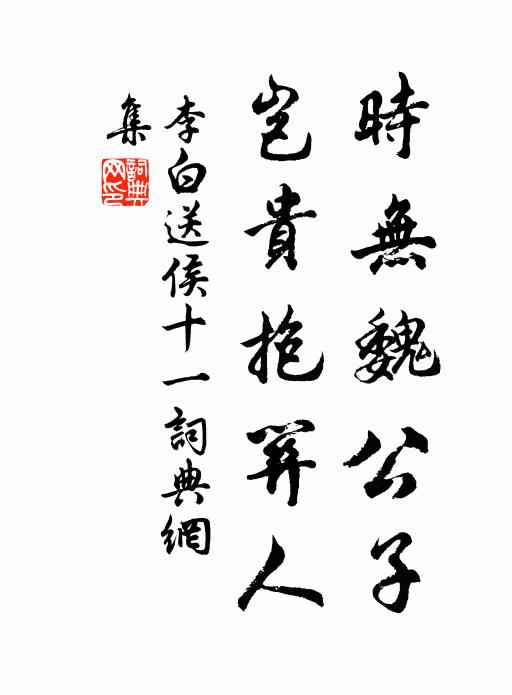 時無魏公子
豈貴抱關人
李白送侯十一詞典網
集
詞典
网印